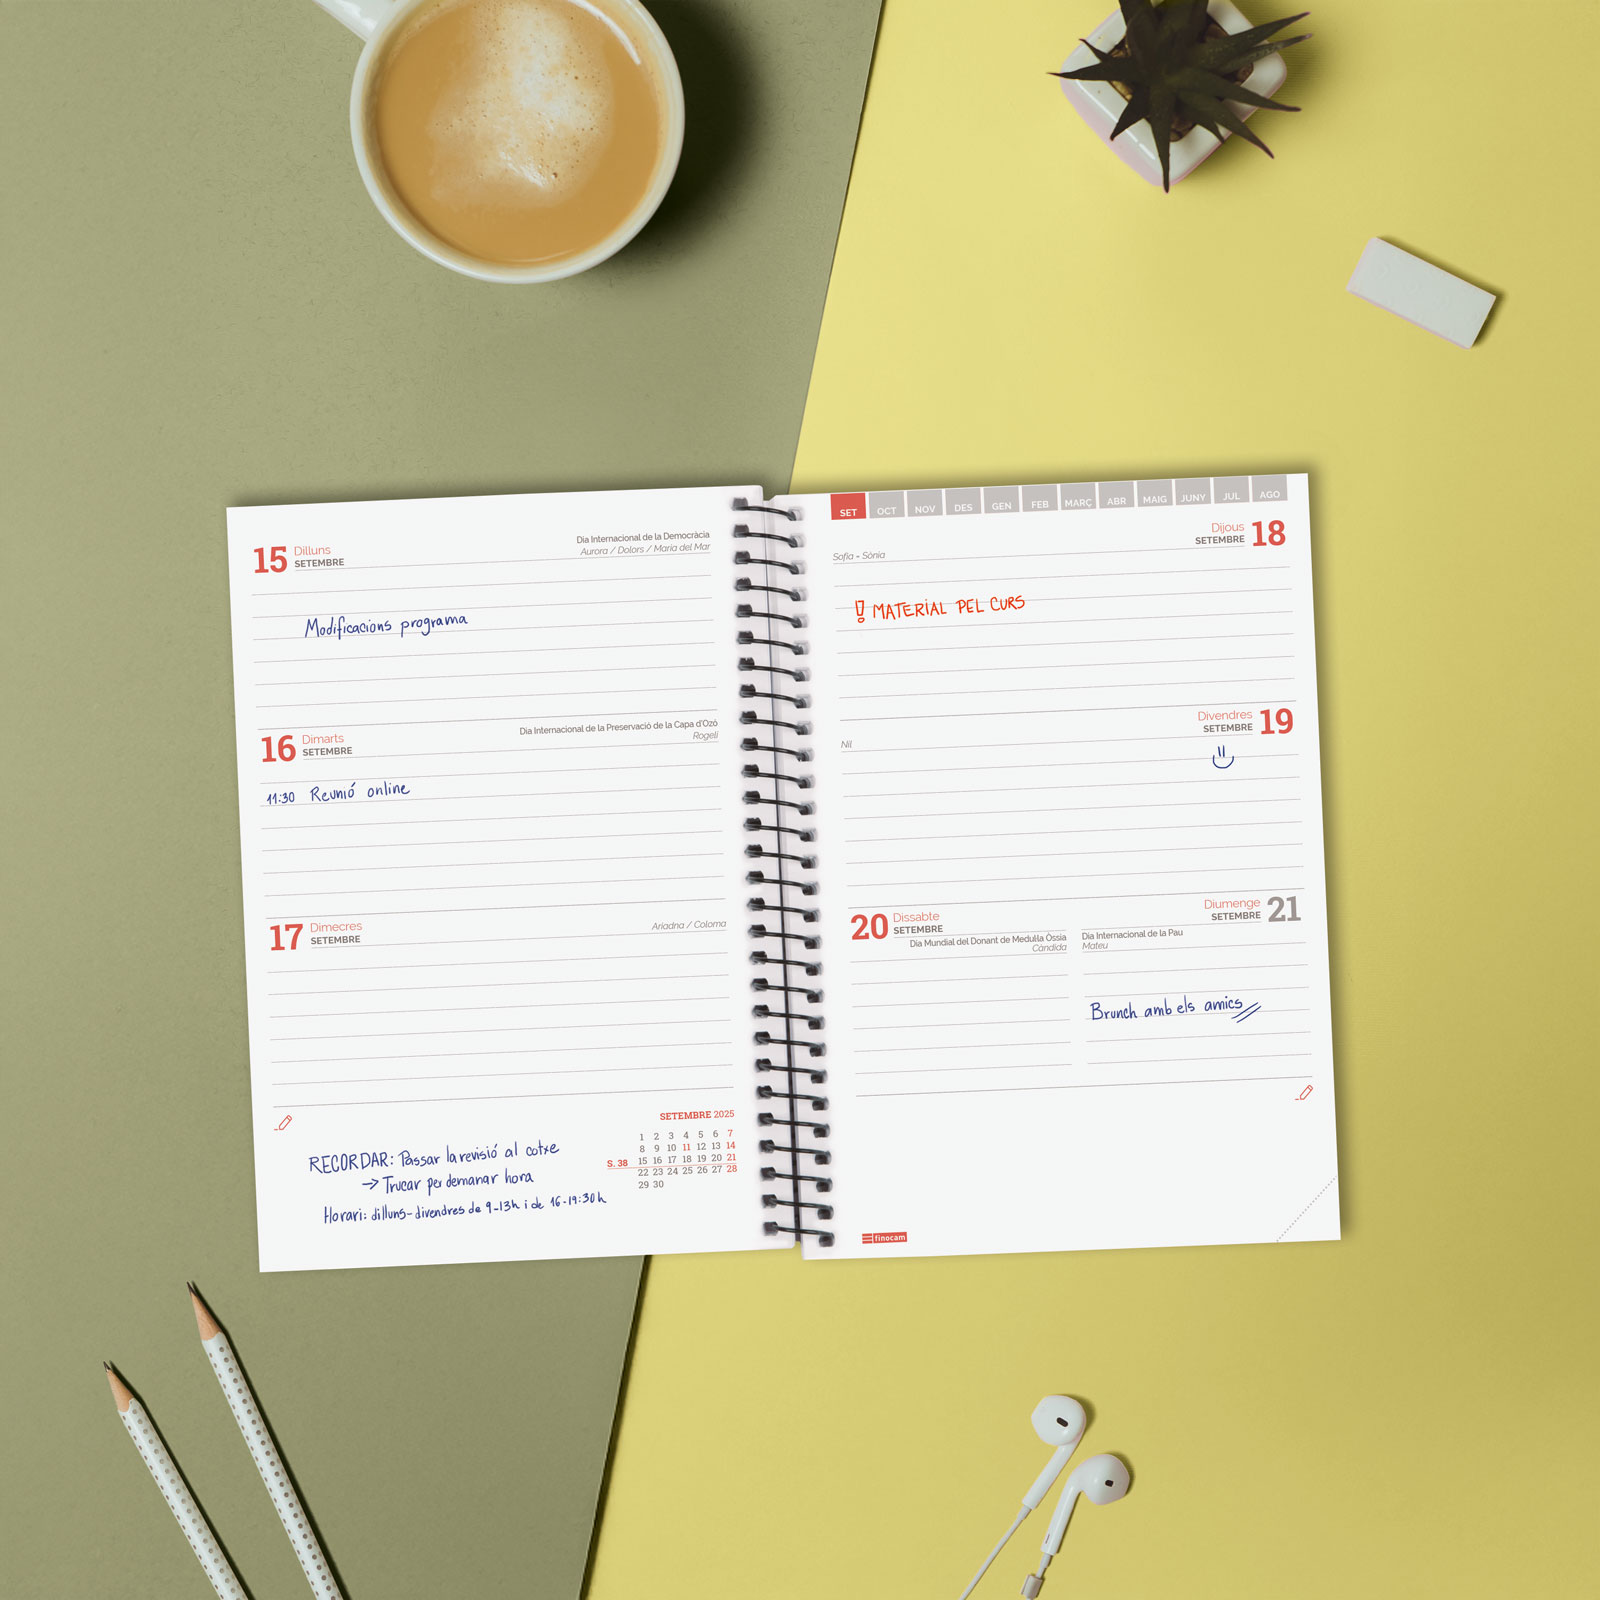 15 Dilluns
SETEMBRE
Dia Internacional de la Democràcia
Aurora / Dolors / Maria del Mar
Modificacions programa
16 Dimarts
SETEMBRE
Dia Internacional de la Preservació de la Capa d'Ozó
Rogeli
11:30 Reunió online
17 Dimecres
SETEMBRE
Ariadna / Coloma
RECORDAR: Passar la revisió al cotxe
→ Trucar per demanar hora
Horari: dilluns-divendres de 9-13h i de 16-19:30h
SETEMBRE 2025
1 2 3 4 5 6 7
8 9 10 11 12 13 14
S. 38 15 16 17 18 19 20 21
22 23 24 25 26 27 28
29 30
SET OCT NOV DES GEN FEB MARÇ ABR MAIG JUNY JUL AGO
Dijous 18
SETEMBRE
Sofia - Sònia
! MATERIAL PEL CURS
Divendres 19
SETEMBRE
Nil
20 Dissabte
SETEMBRE
Dia Mundial del Donant de Medul·la Òssia
Càndida
Diumenge 21
SETEMBRE
Dia Internacional de la Pau
Mateu
Brunch amb els amics
finocam